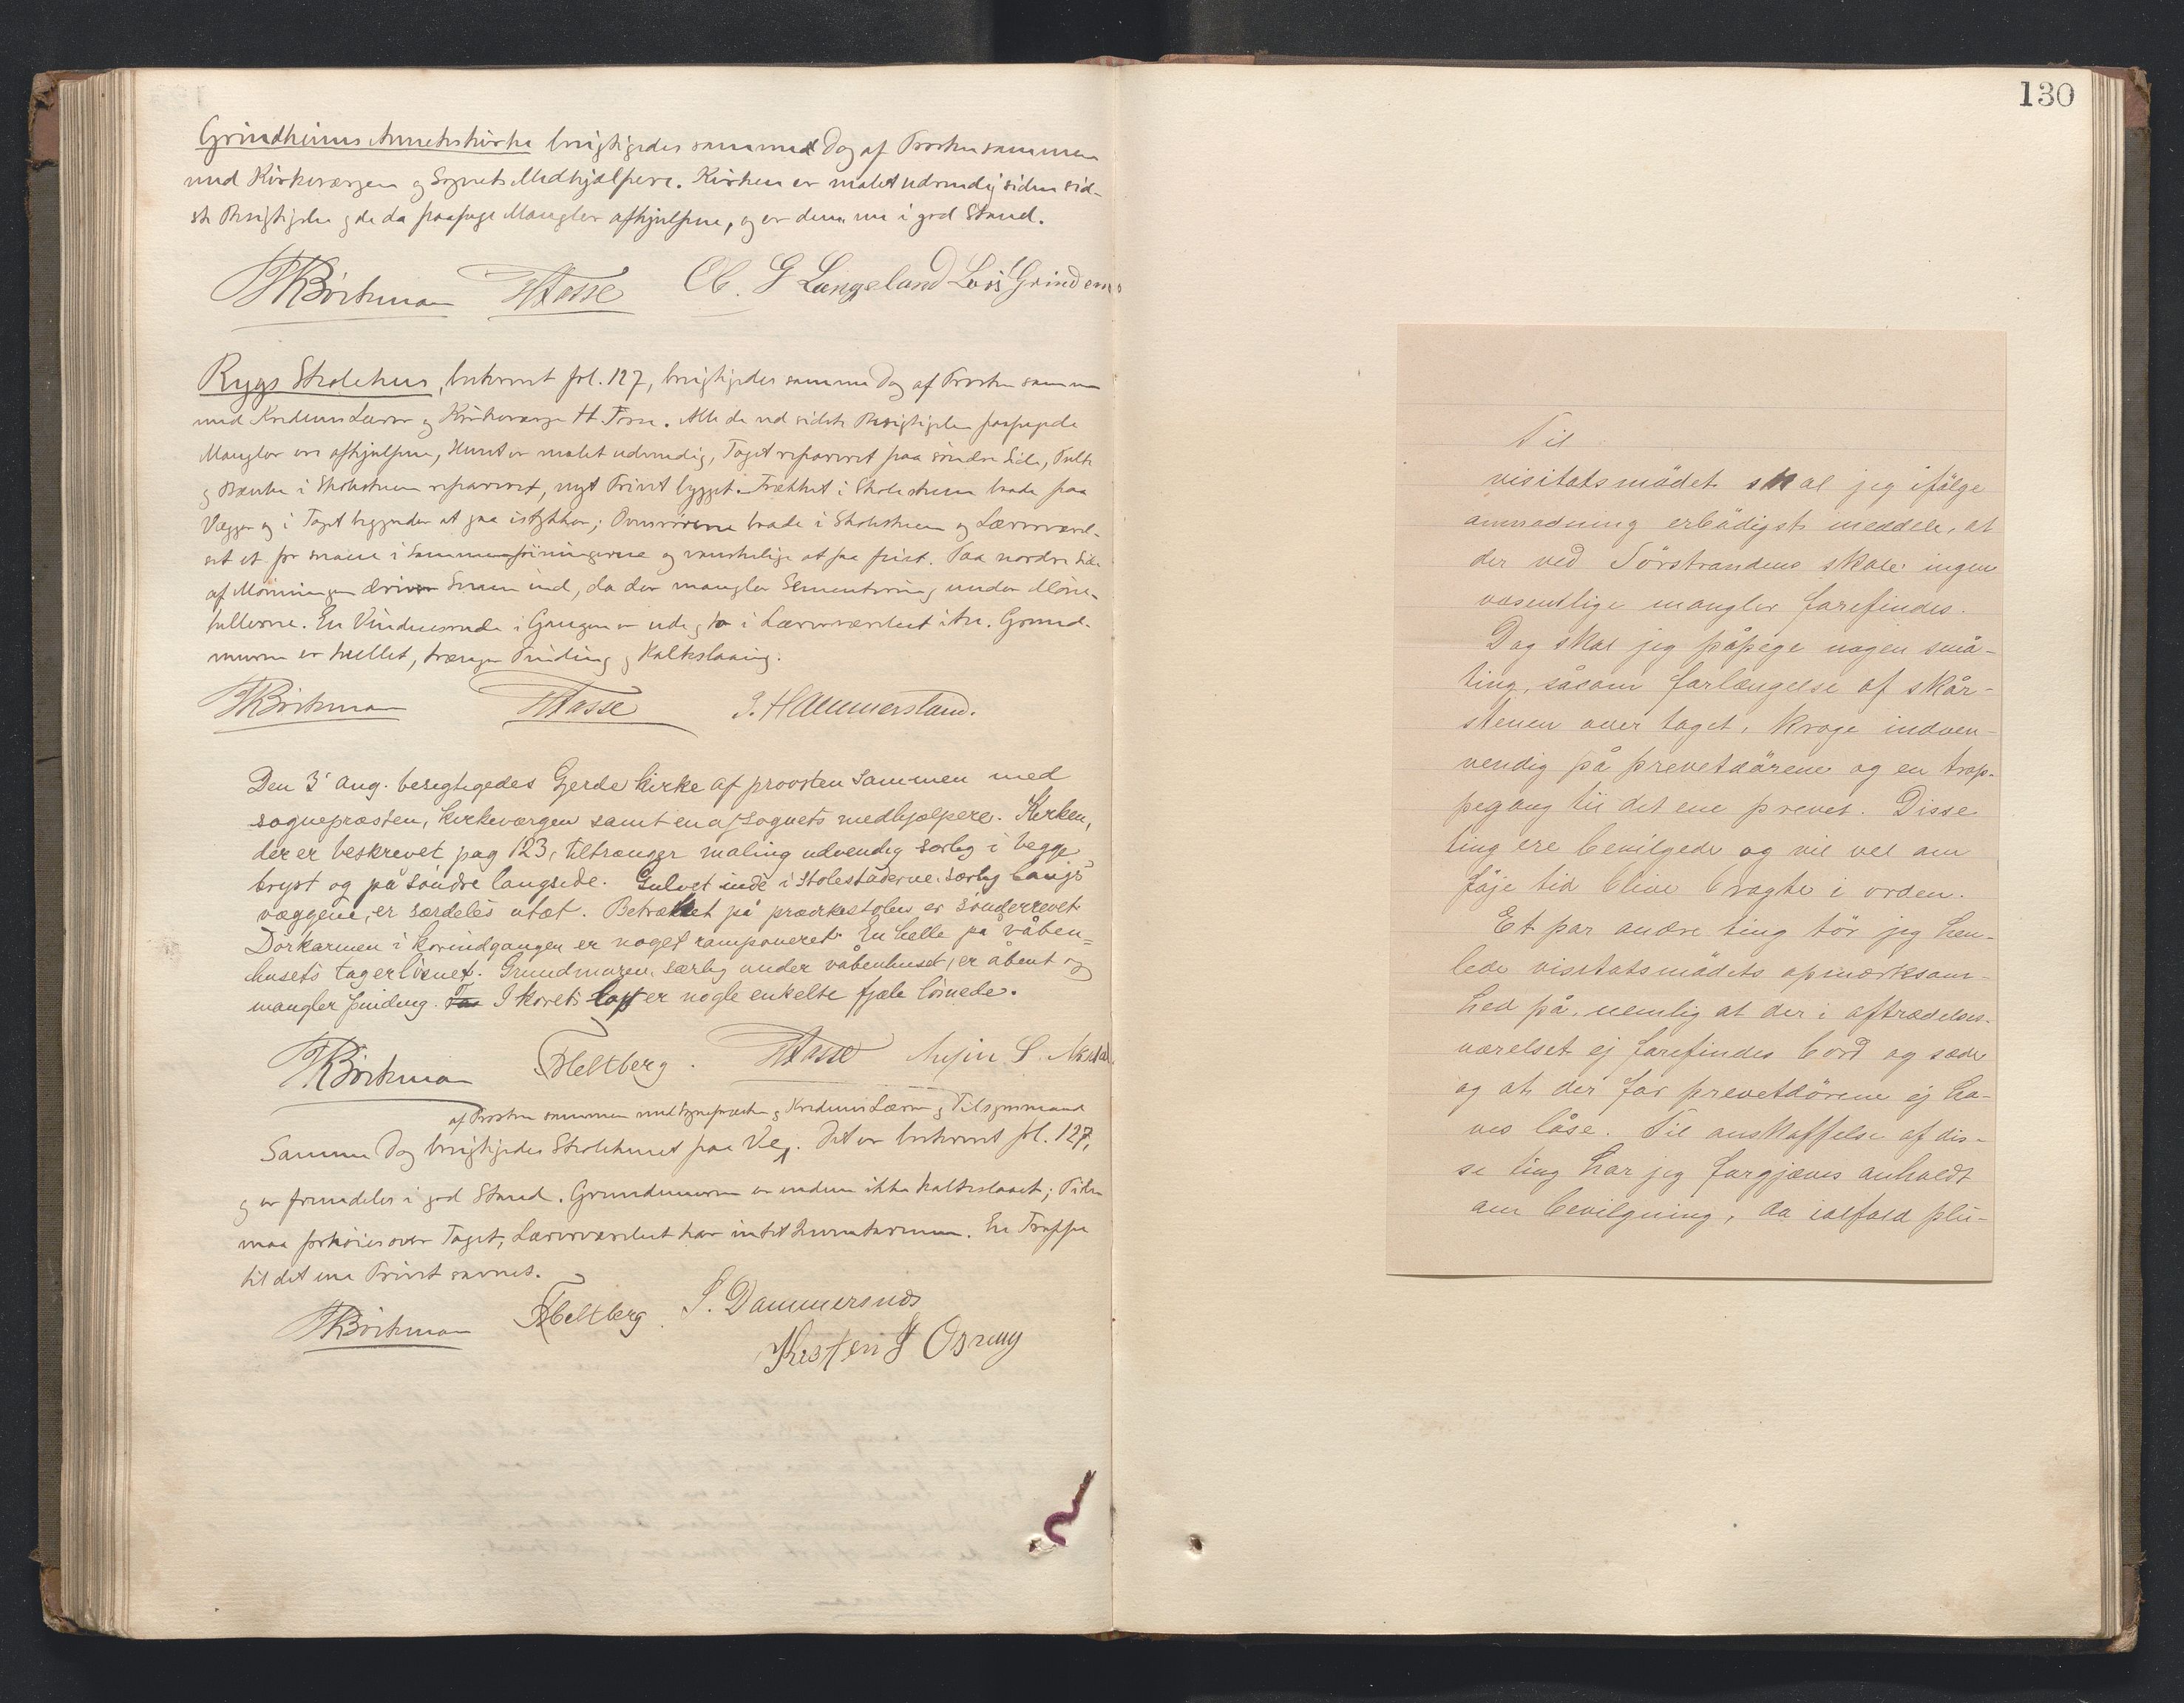 Grindheims Annekskirke besigtigedes samme Dag af Provsten sammen
med Kirkeværgen og Sognets Medhjælpere. Kirken er malet udvendig siden sid-
ste Besigtigelse og de da paapegte Mangler afhjulpne, og er den nu i god Stand.
Börkman HTosse G Langeland Lars Grindem
Rygs Skolehus, beskrevet fol. 127, besigtigedes samme Dag af Provsten sammen
med Kredsens Lærer og Kirkeværge H. Tosse. Alle de ved sidste Besigtigelse paapegede
Mangler ere afhjulpne, Huset er malet udvendig, Taget repareret paa söndre Side, Pulte
og Bænke i Skolestuen repareret, nyt Privet bygget. Trækket i Skolestuen baade paa
Vægge og i Taget begynder at gaa istykker; Ovnsrörene baade i Skolestuen og Lærerværel-
set er for snaue i Sammenföiningerne og vanskelige at faa feiet. Paa nordre Side
af Mönningen driver Sneen ind, da der mangler Sementering under Möne-
hellerne. En Vinduesrude i Gangen er ude og to i Lærerværelset itu. Grund-
muren er hullet, trænger Pinding og Kalkslaaing.
Börkman HTosse J. Hammersland.
Den 3' aug. besigtigedes Gjerde kirke af provsten sammen med
sognepræsten, kirkeværgen samt en af sognets medhjælpere. Kirken,
der er beskrevet pag 123, tiltrænger maling udvendig særlig i begge
bryst og på söndre langside. Gulvet inde i stolestaderne særlig langs
væggene, er særdeles utæt. Betrækket på prækestolen er sönderrevet.
Dörkarmen i korindgangen er noget ramponeret. En helle på våben=
husets tag er lösnet. Grundmuren, særlig under våbenhuset, er åbent og
mangler pinding. I korets loft er nogle enkelte fjæle lösnede.
Börkman Heltberg. HTosse S.
af Provsten sammen med Sognepræsten og Kredsens Lærer og Tilsynsmand
Samme Dag besigtigedes Skolehuset paa Ve. Det er beskrevet fol. 127,
og er fremdeles i god Stand. Grundmuren er endnu ikke kalkslaaet; Piben
maa forhöies over Taget; Lærerværelset har intet Inventarium. En Trappe
til det ene Privet savnes.
Börkman Heltberg. S. Dammersnes
130
Til
visitatsmödet skal jeg ifölge
anmodning erbödigst meddele, at
der ved Sörstrandens skole ingen
væsentlige mangler forefindes.
Dog skal jeg påpege nogen små-
ting, såsom forlængelse af skår-
stenen over taget, kroge indven-
vendig på prevetdörene og en trap-
pegang til det ene prevet. Disse
ting ere bevilgede og vil vel om
föje tid blive bragte i orden.
Et par andre ting tör jeg hen-
lede visitatsmödets opmærksom-
hed på, nemlig at der i aftrædelses-
værelset ej forefindes bord og sæde
og at der for prevetdörene ej ha-
ves låse. Til anskaffelse af dis-
se ting har jeg forgjæves anholdt
om bevilgning, da ialfald plu-